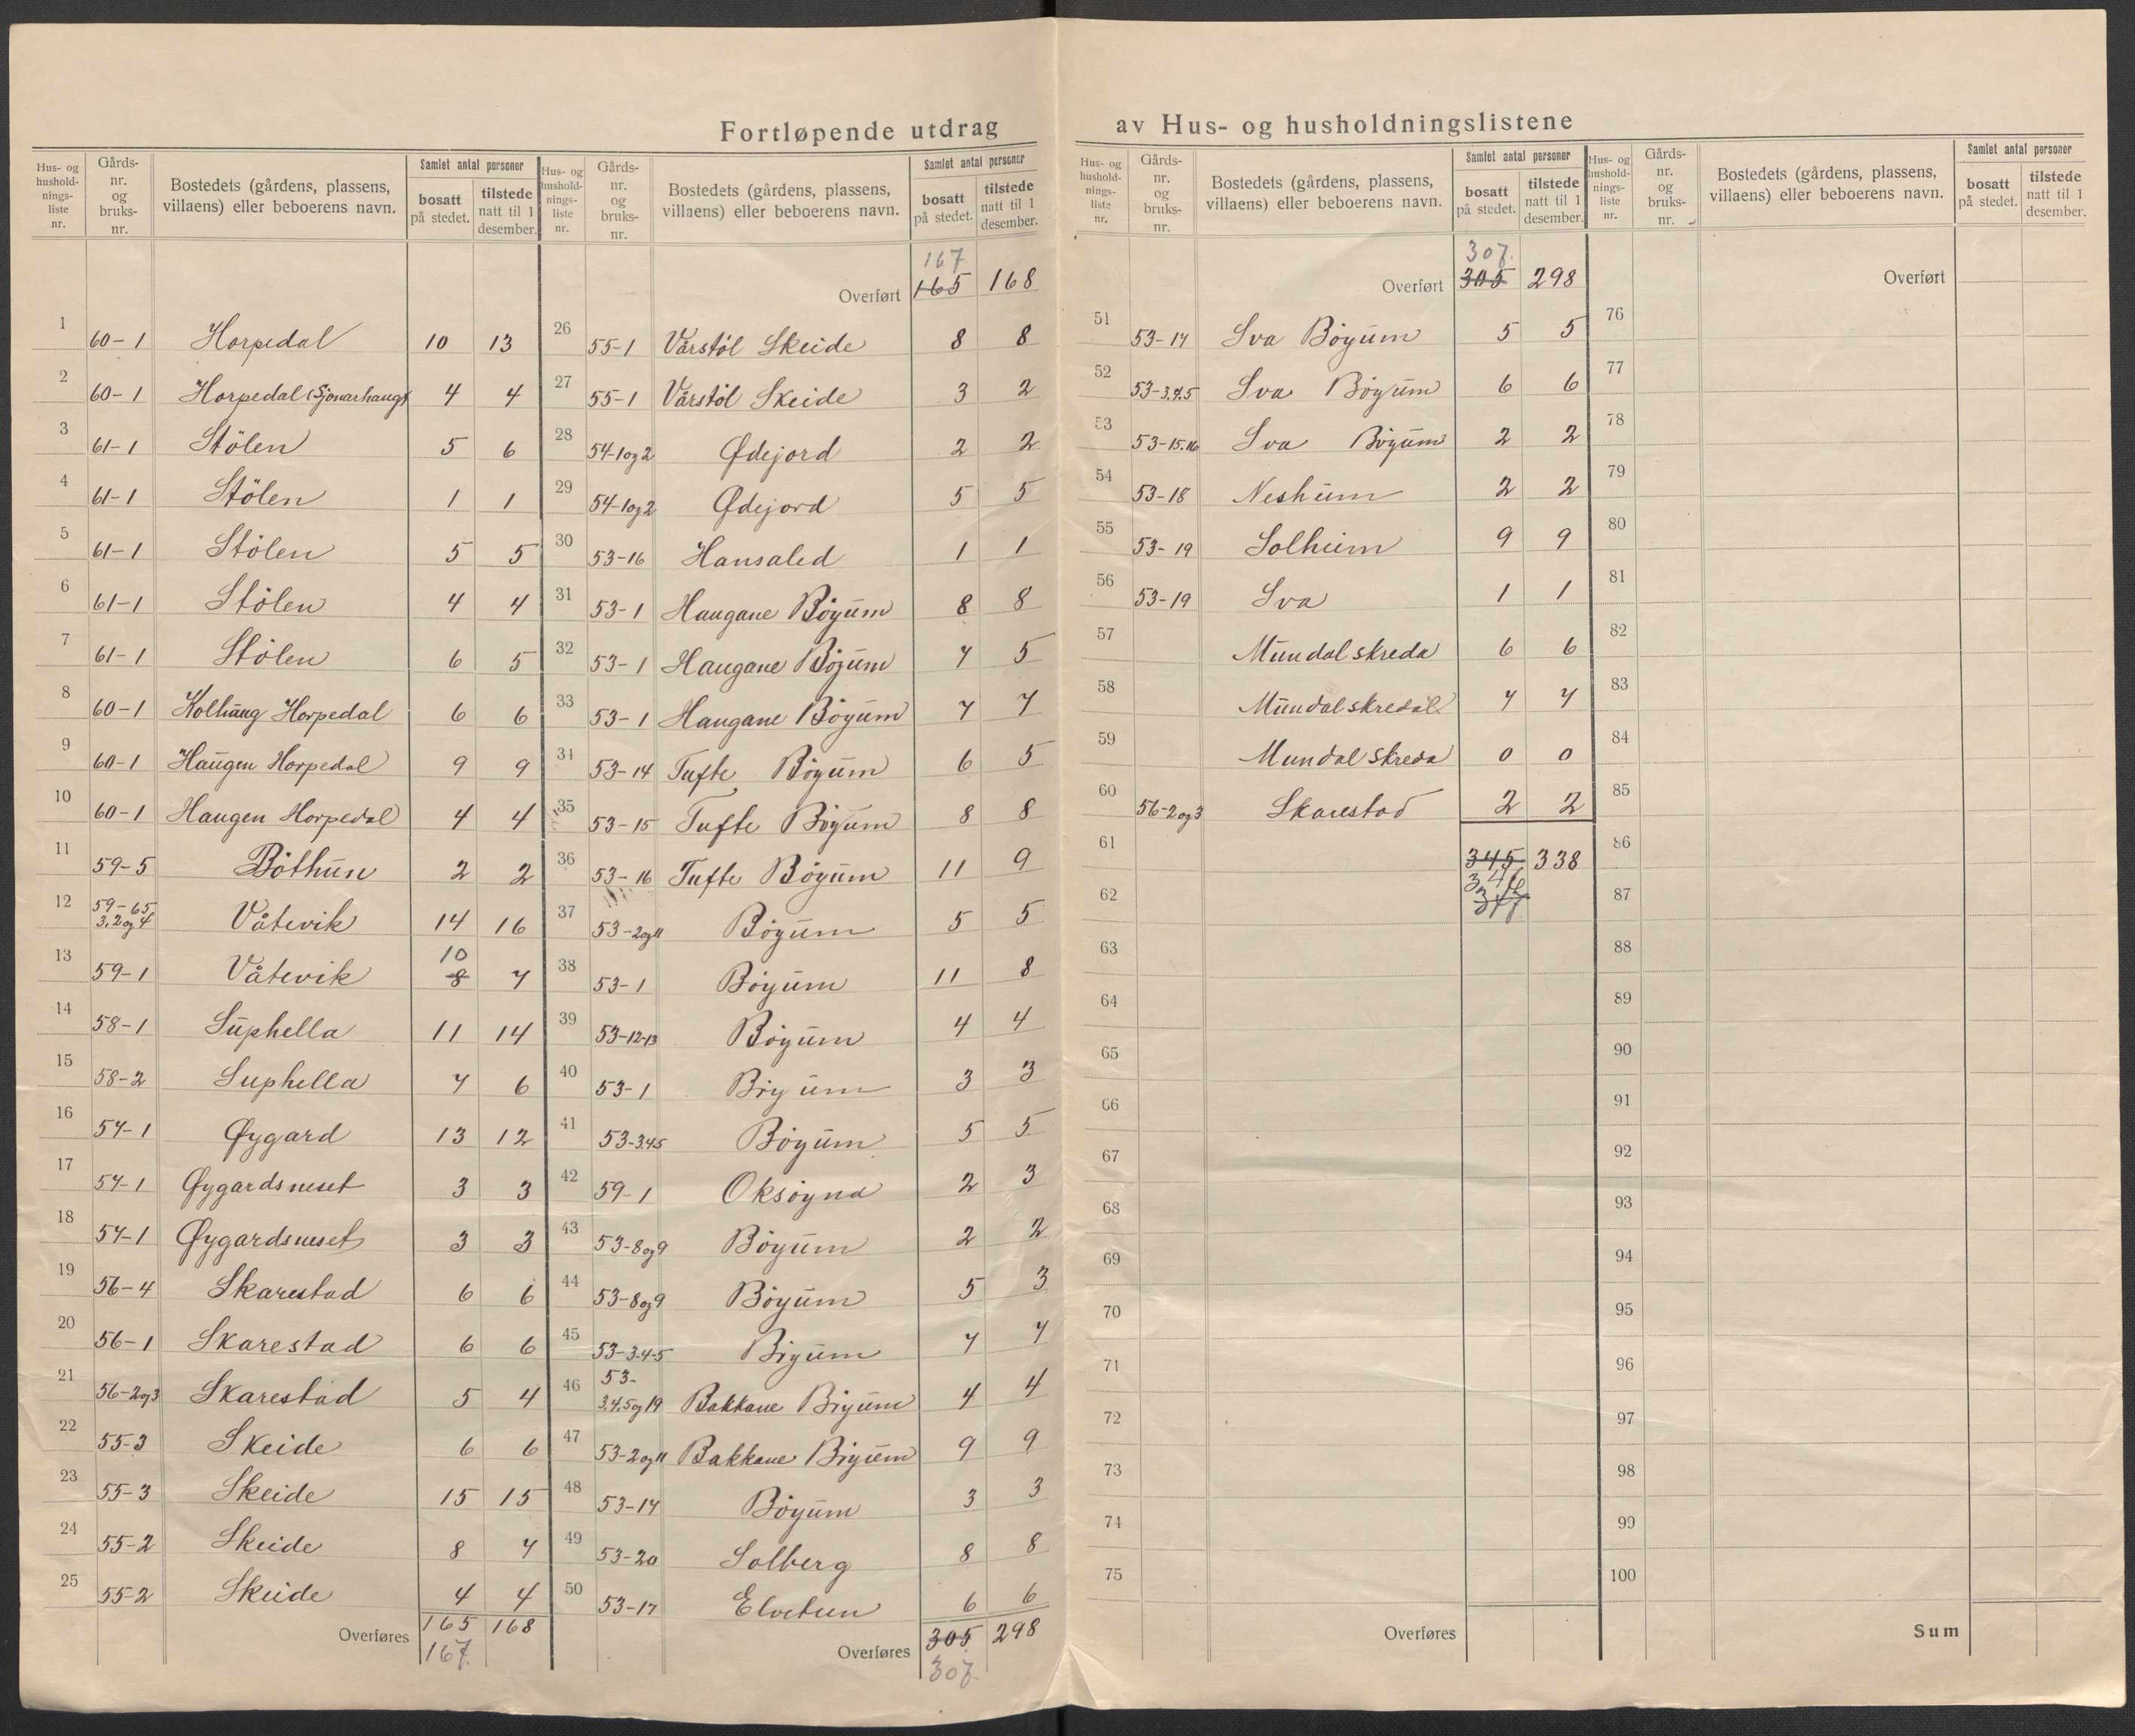 Fortløpende utdrag av Hus- og husholdningslistene
Hus- og hushold-nings-liste nr. Gårds-nr. og bruks-nr. Bostedets (gårdens, plassens, villaens) eller beboerens navn. Samlet antal personer bosatt på stedet. tilstede natt til 1 desember.
1 60-1 Horpedal 10 13
2 60-1 Horpedal (Sjonarhaug) 4 4
3 61-1 Stölen 5 6
4 61-1 Stölen 1 1
5 61-1 Stölen 5 5
6 61-1 Stölen 4 4
7 61-1 Stölen 6 5
8 60-1 Kolhaug Horpedal 6 6
9 60-1 Haugen Horpedal 9 9
10 60-1 Haugen Horpedal 4 4
11 59-5 Böthun 2 2
12 59-65 3,2og4 Våtevik 14 16
13 59-1 Våtevik 10 8 7
14 58-1 Suphella 11 14
15 58-2 Suphella 7 6
16 57-1 Øygard 13 12
17 57-1 Øygardsneset 3 3
18 57-1 Øygardsneset 3 3
19 56-4 Skarestad 6 6
20 56-1 Skarestad 6 6
21 56-2og3 Skarestad 5 4
22 55-3 Skeide 6 6
23 55-3 Skeide 15 15
24 55-2 Skeide 8 7
25 55-2 Skeide 4 4
Overføres 165 168
167
Hus- og hushold-nings-liste nr. Gårds-nr. og bruks-nr. Bostedets (gårdens, plassens, villaens) eller beboerens navn. Samlet antal personer bosatt på stedet. tilstede natt til 1 desember.
167
Overført 165 168
26 55-1 Vårstöl Skeide 8 8
27 55-1 Vårstöl Skeide 3 2
28 54-1og2 Ødejord 2 2
29 54-1og2 Ødejord 5 5
30 53-16 Hansaled 1 1
31 53-1 Haugane Böyum 8 8
32 53-1 Haugane Böyum 7 5
33 53-1 Haugane Böyum 7 7
34 53-14 Tufte Böyum 6 5
35 53-15 Tufte Böyum 8 8
36 53-16 Tufte Böyum 11 9
37 53-2og11 Böyum 5 5
38 53-1 Böyum 11 8
39 53-12-13 Böyum 4 4
40 53-1 Böyum 3 3
41 53-345 Böyum 5 5
42 59-1 Oksöyna 2 3
43 53-8og9 Böyum 2 2
44 53-8og9 Böyum 5 3
45 53-3-4-5 Böyum 7 7
46 53-3,4,5og19 Bakkane Böyum 4 4
47 53-2og11 Bakkane Böyum 9 9
48 53-14 Böyum 3 3
49 53-20 Solberg 8 8
50 53-17 Elvetun 6 6
Overføres 305 298
307
Hus- og hushold-nings-liste nr. Gårds-nr. og bruks-nr. Bostedets (gårdens, plassens, villaens) eller beboerens navn. Samlet antal personer bosatt på stedet. tilstede natt til 1 desember.
307
Overført 305 298
51 53-17 Sva Böyum 5 5
52 53-3.4.5 Sva Böyum 6 6
53 53-15.16 Sva Böyum 2 2
54 53-18 Nesheim 2 2
55 53-19 Solheim 9 9
56 53-19 Sva 1 1
57 Mundalskreda 6 6
58 Mundalskredal 7 7
59 Mundalskreda 0 0
60 56-2og3 Skarestad 2 2
61 345 338
346
62 347
63
64
65
66
67
68
69
70
71
72
73
74
75
Overføres
Hus- og hushold-nings-liste nr. Gårds-nr. og bruks-nr. Bostedets (gårdens, plassens, villaens) eller beboerens navn. Samlet antal personer bosatt på stedet. tilstede natt til 1 desember.
Overført
76
77
78
79
80
81
82
83
84
85
86
87
88
89
90
91
92
93
94
95
96
97
98
99
100
Sum